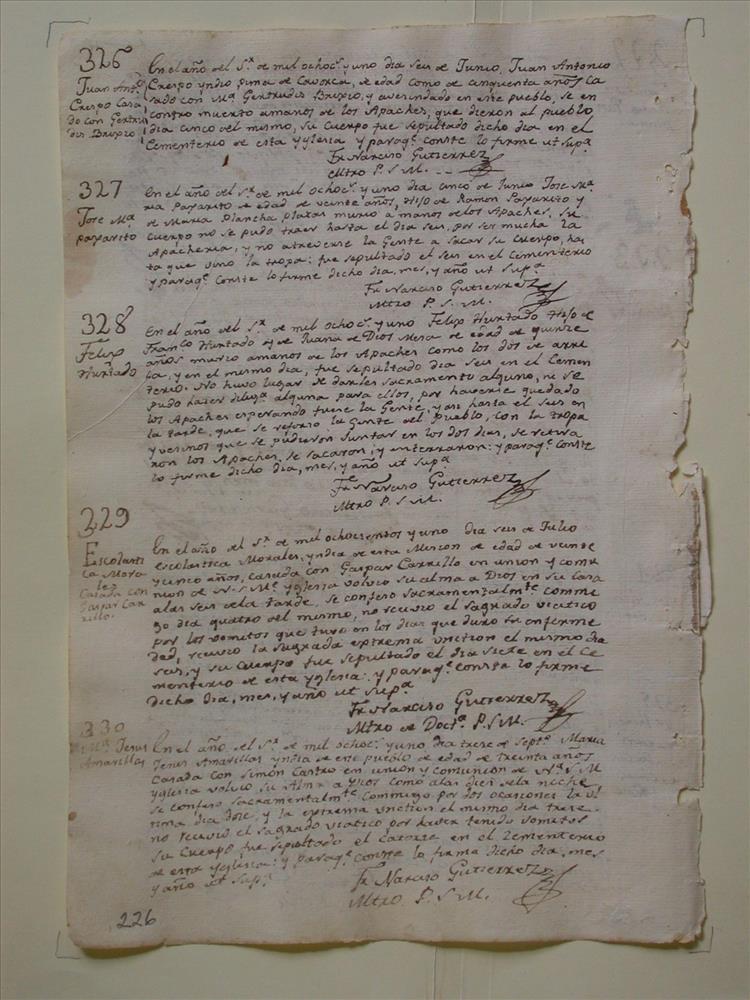 326
Juan Antº
Crespo Casa
do con Gertru
dis Brixio
En el año del Sr de mil ochocs y uno dia seis de Junio, Juan Antonio
Crespo yndio pima de Caborca, de edad como de cinquenta años Ca
sado con Mª Gertrudis Brixio, y avesindado en este pueblo, se en
contro muerto amanos de los Apaches, que dieron al pueblo,
dia cinco del mismo, su Cuerpo fue sepultado dicho dia en el
Cementerio de esta yglesia y paraqe conste lo firme ut Supª
Fr Narciso Gutierrez
Mtro P. S. M.
327
Jose Mª
payarito
En el año del Sr de mil ochocs y uno dia cinco de Junio Jose Ma
ria Payarito de edad de veinte años, Hijo de Ramon Payarito y
de Maria Plancha platas murio a manos de los Apaches, su
Cuerpo no se pudo traer hasta el dia seis, por ser mucha la
Apacheria, y no atreverse la Gente a sacar su Cuerpo, has
ta que vino la tropa: fue sepultado el seis en el Cementerio
y paraqe Conste lo firme dicho dia, mes, y año ut Supª
Fr Narciso Gutierrez
Mtro P. S. M.
328
Felix
Hurtado
En el año del Sr de mil ochocs y uno Felix Hurtado Hijo de
Franco Hurtado y de Juana de Dios Mesa de edad de quinze
años murio amanos de los Apaches como los dos de arri
ba, y en el mismo dia, fue sepultado dia seis en el Cemen
terio. No huvo lugar de darles sacramento alguno, ni se
pudo hazer diligª alguna para ellos, por haverse quedado
los Apaches esperando fuese la Gente, y asi hasta el seis en
la tarde, que se reforso la Gente del Pueblo, con la tropa
y vesinos que se pudieron juntar en los dos dias, se retira
ron los Apaches, se sacaron, y enterraron: y paraqe Conste
lo firme dicho dia, mes, y año ut Supª
Fr Narciso Gutierrez
Mtro P. S. M.
229
Escolasti
ca Mora
les
Casada con
Gaspar Car
rillo.
En el año del Sr de mil ochocientos y uno dia seis de Julio
Escolastica Morales, yndia de esta Mision de edad de veinte
y cinco años, casada con Gaspar Carrillo en union y comu
nion de N. S. Me yglesia volvio su alma a Dios en su Casa
alas seis dela tarde, se confeso sacramentalmte comul
go dia quatro del mismo, no recivio el sagrado viatico
por los vomitos que tuvo en los dias que duro su enferme
dad, recivio la sagrada extrema uncion el mismo dia
seis, y su Cuerpo fue sepultado el dia siete en el Ce
menterio de esta yglesia: y paraqe consta lo firme
dicho dia, mes, y año ut Supª
Fr Narciso Gutierrez
Mtro de Doctª P. S. M.
330
Mª Jesus
Amarillas
En el año del Sr de mil ochocs y uno dia trese de Septe Maria
Jesus Amarillas yndia de este pueblo de edad de treinta años
Casada con Simon Castro en union y comunion de Nª S. M
yglesia volvio su Alma a Dios como alas diez dela noche
se confeso sacramentalmte Comulgo por dos ocasiones la ul
tima dia dose, y la extrema uncion el mismo dia trese
no recivio el sagrado viatico por haver tenido vomitos
su Cuerpo fue sepultado el catorze en el Zementerio
de esta yglesia: y paraqe conste lo firme dicho dia, mes
y año ut Supª
Fr Narciso Gutierrez
Mtro P. S. M.
226